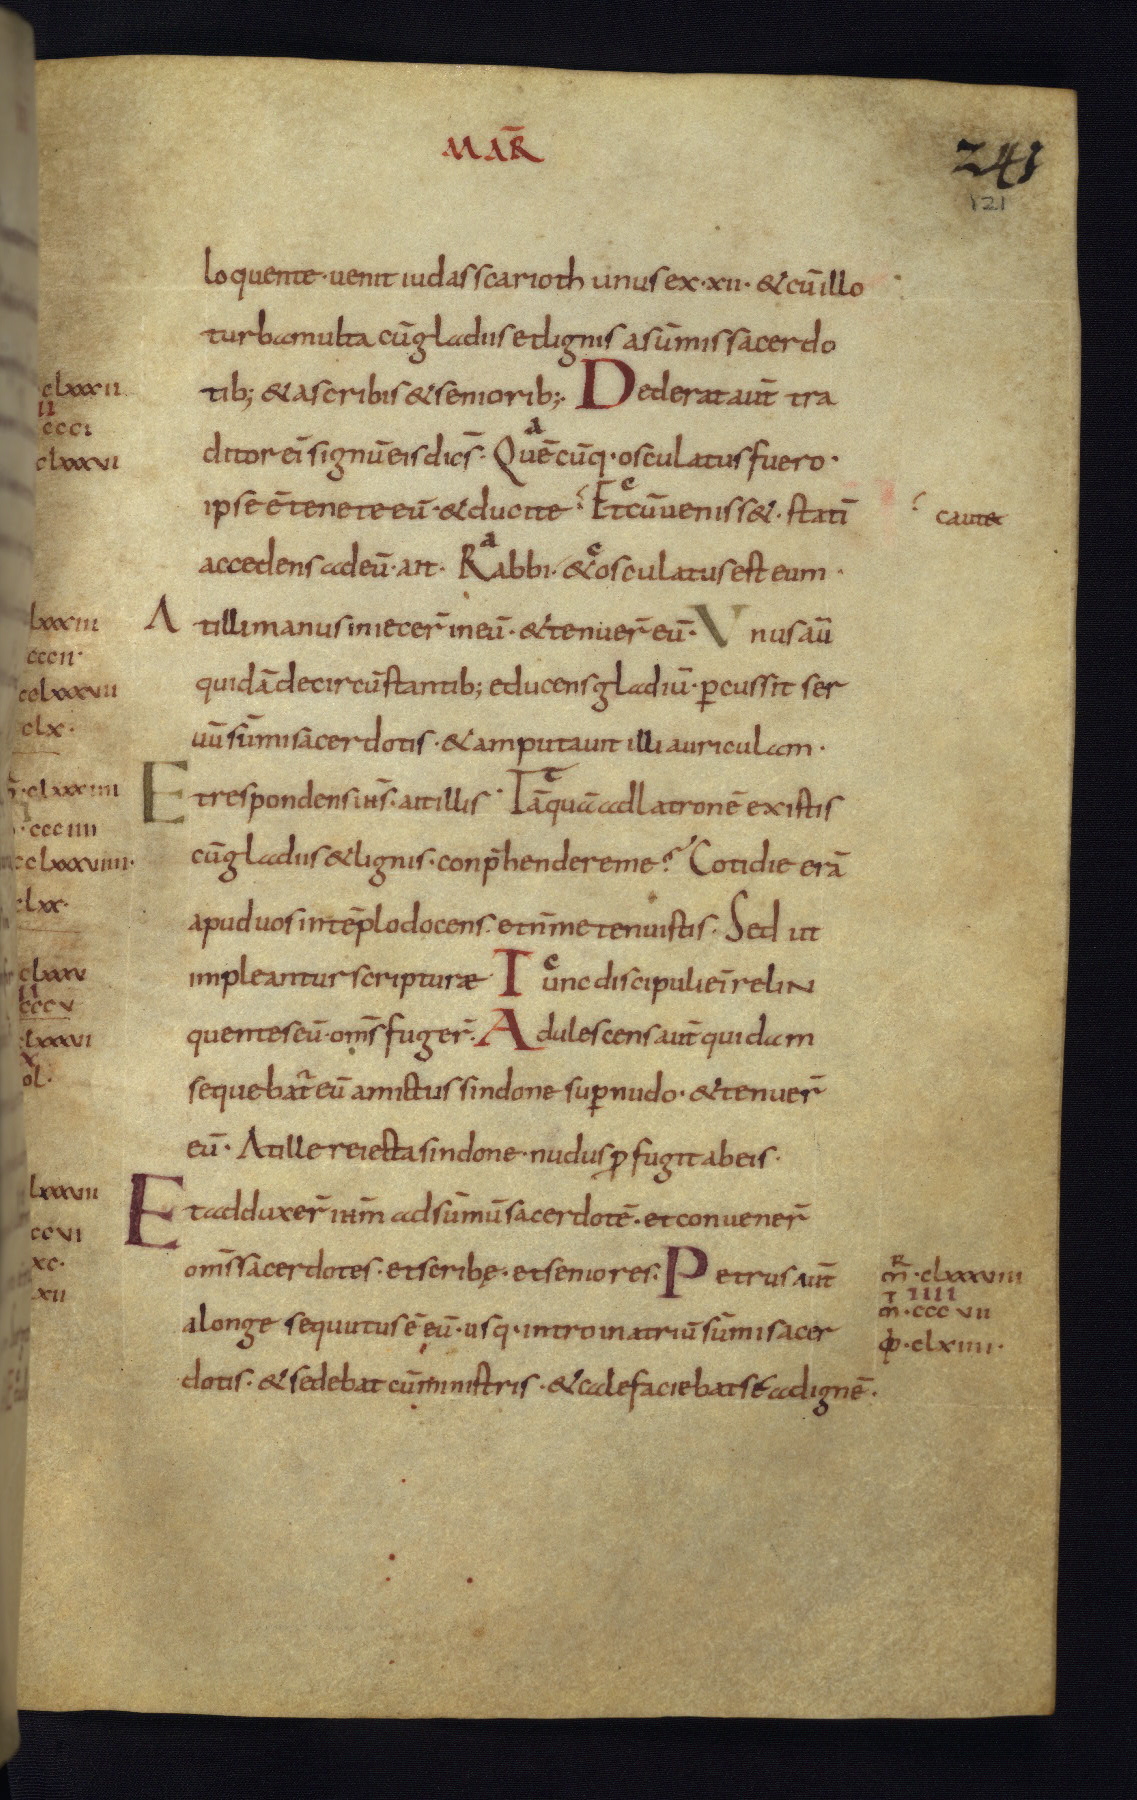 MAR̄
241
121
loquente· uenit iudas scarioth unus ex·xii· & cū illo
turba multa cū gladiis et lignis a sūmis sacerdo
tib; & a scribis & seniorib;· Dederat aut̄ tra
ditor ei signū eis dicēs· Quēcūq· osculatus fuero·
a
ipse ē tenete eū· & ducite Et cū uenisset· statī
c
caute
accedens ad eū· ait· Rabbi· & osculatus est eum·
a c
At illi manus iniecer̄ in eū· & tenuer̄ eū· Vnus aū
quidā de circūstantib; educens gladiū· ꝑcussit ser
uū sūmi sacerdotis· & amputauit illi auriculam·
Et respondens ih̄s· ait illis· Tāquā ad latronē existis
c
cū gladiis & lignis· conp̄hendere me? Cotidie erā
apud uos in tēplo docens· et n̄ me tenuistis· Sed ut
impleantur scripturae Tunc discipuli ei relin
c
quentes eū· om̄s fuger̄· Adulescens aut̄ quidam
sequebat̄ eū amictus sindone suꝑ nudo· & tenuer̄
eū· At ille reiecta sindone· nudus ꝓfugit ab eis·
Et adduxer̄ ih̄m ad sūmū sacerdotē· et conuener̄
om̄s sacerdotes· et scribę· et seniores· Petrus aut̄
a longe sequutus ē eū· usq· intro in atriū sūmi sacer
dotis· & sedebat cū ministris· & calefaciebat se ad ignē·
clxxxii
ii
ccci
clxxxvi
lxxxiii
cccii·
cclxxxvii
clx·
clxxxiiii
·ccciiii
cclxxxviiii·
clxx·
clxxxv
ii
cccv
clxxxvi
x
ol·
lxxxvii
ccvi
xc·
xii
R
m̄·clxxxviii
iiii
m̄·cccvii
·clxiiii·